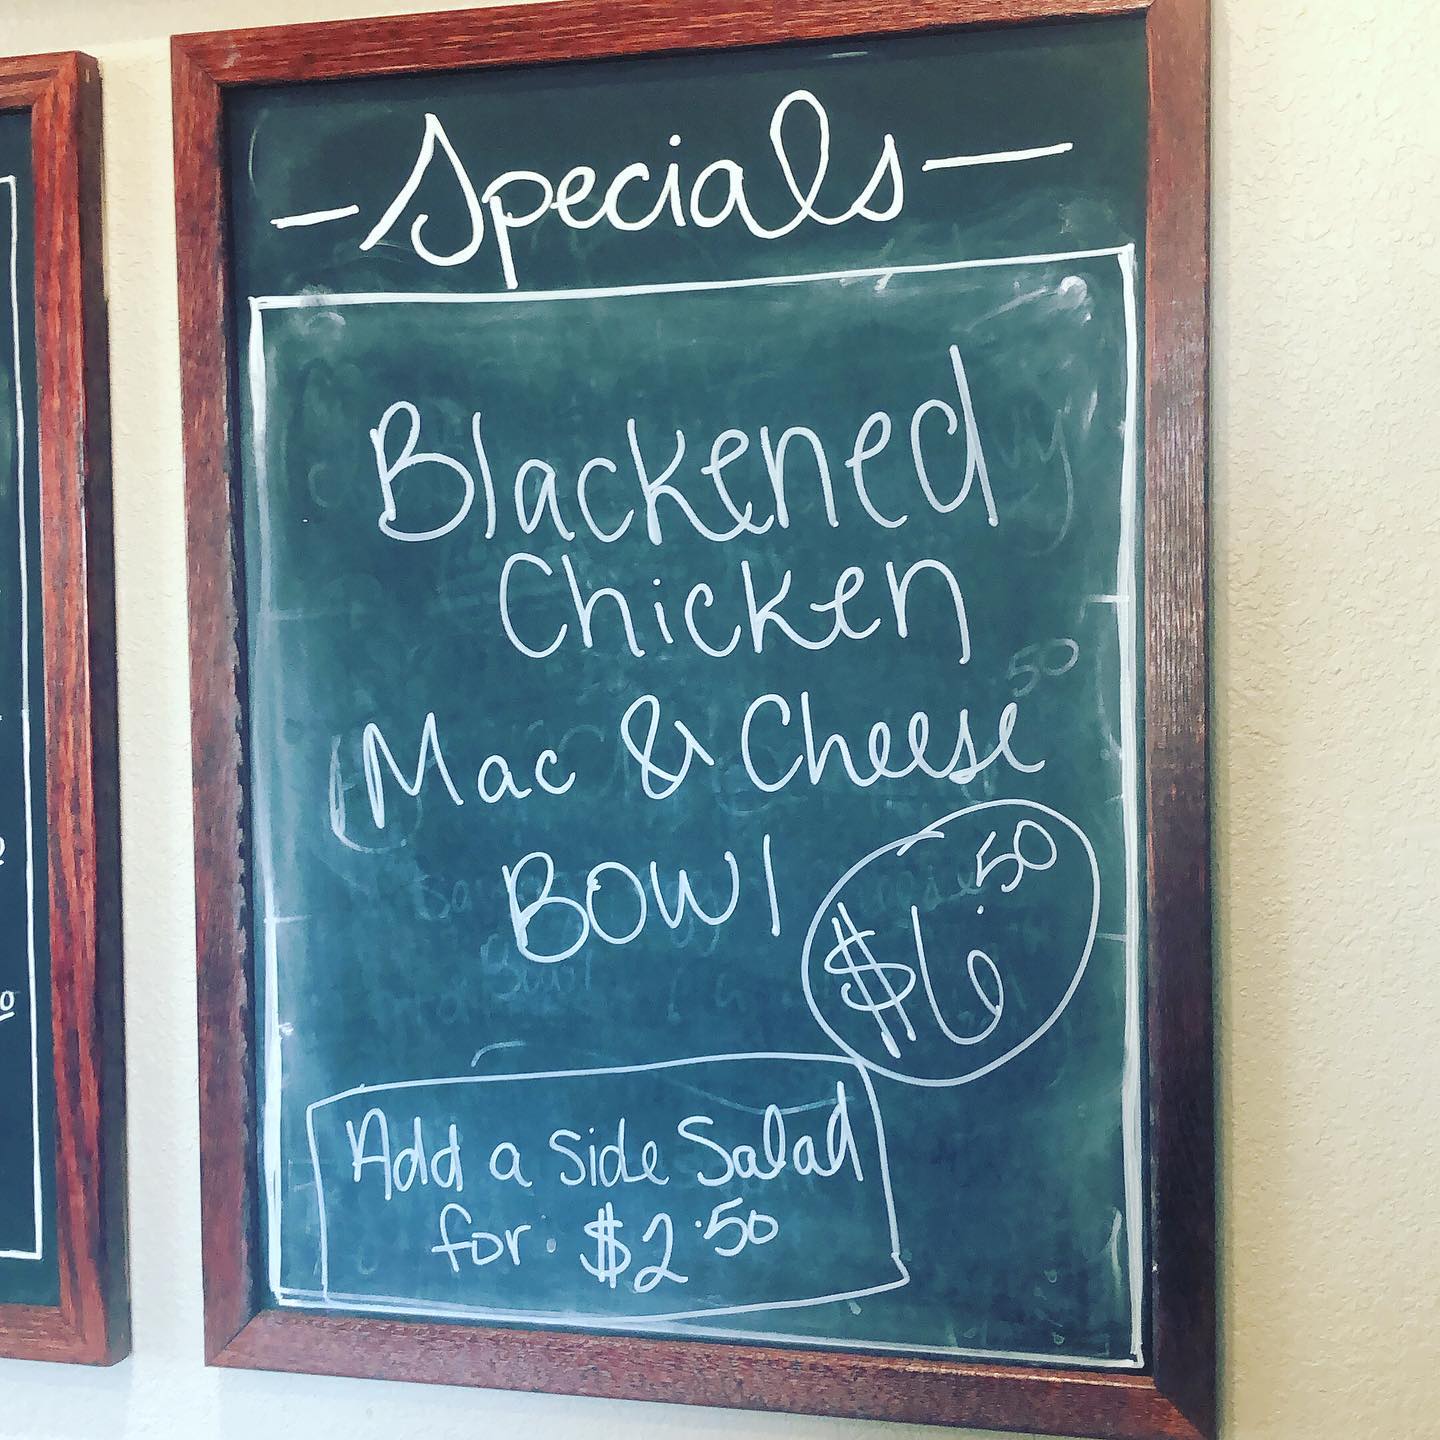 - Specials -
Blackened
Chicken
Mac & Cheese
Bowl
$6.50
Add a side Salad
for $2.50